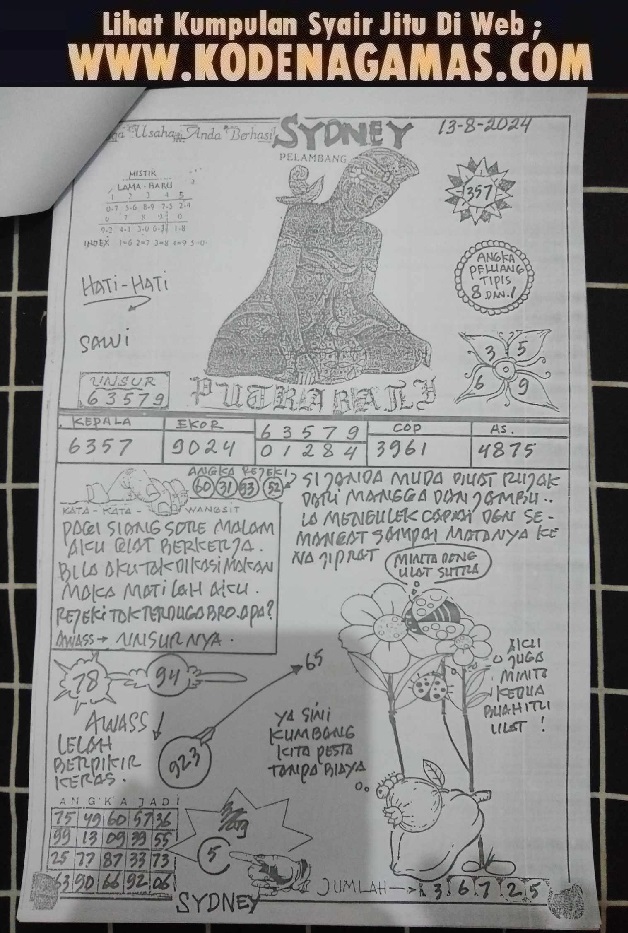 Lihat Kumpulan Syair Jitu Di Web ;
WWW.KODENAGAMAS.COM
Usaha Anda Berhasil
SYDNEY
13-8-2024
PELAMBANG
MISTIK
LAMA - BARU
INDEX 1=6 2=7 3=8 4=9 5=0
357
HATI-HATI
ANGKA
PELUANG
TIPIS
8 DAN 1
SAWI
3 5
6 9
UNSUR
63579
PUTRA BALI
KEPALA EKOR 63579 COP AS.
6357 9024 01284 3961 4875
ANGKA REJEKI
60 31 93 52
KATA - KATA - WANGSIT
PAGI SIANG SORE MALAM
AKU GIAT BERKERJA.
BILA AKU TAK DIKASI MAKAN
MAKA MATI LAH AKU.
REJEKI TAK TERDUGA BRO. APA?
AWASS → UNSURNYA.
SI JANDA MUDA BUAT RUJAK
DARI MANGGA DAN JAMBU..
IA MENGULEK CABAI DGN SE-
MANGAT SAMPAI MATANYA KE
NA JIPRAT
MINTA DENG
ULAT SUTRA
AKU
JUGA
MINTA
KEDUA
BUAH ITU
ULAT !
78
94
65
AWASS !
LELAH
BERPIKIR
KERAS.
923
YA SINI
KUMBANG
KITA PESTA
TANPA BIAYA
ANGKA JADI
75 49 60 57 36
99 13 09 39 55
25 77 87 33 73
63 90 66 92 06
5
SYDNEY
JUMLAH → 3 6 7 2 5